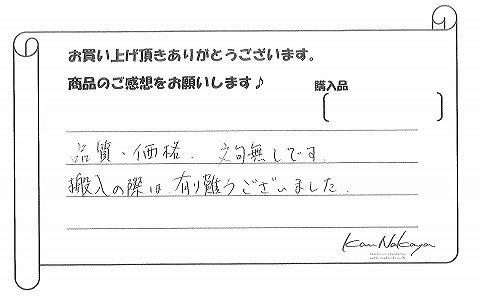 お買い上げ頂きありがとうございます。
商品のご感想をお願いします♪
購入品
品質・価格、文句無しです。
搬入の際は、有り難うございました。
Kan Nakaya